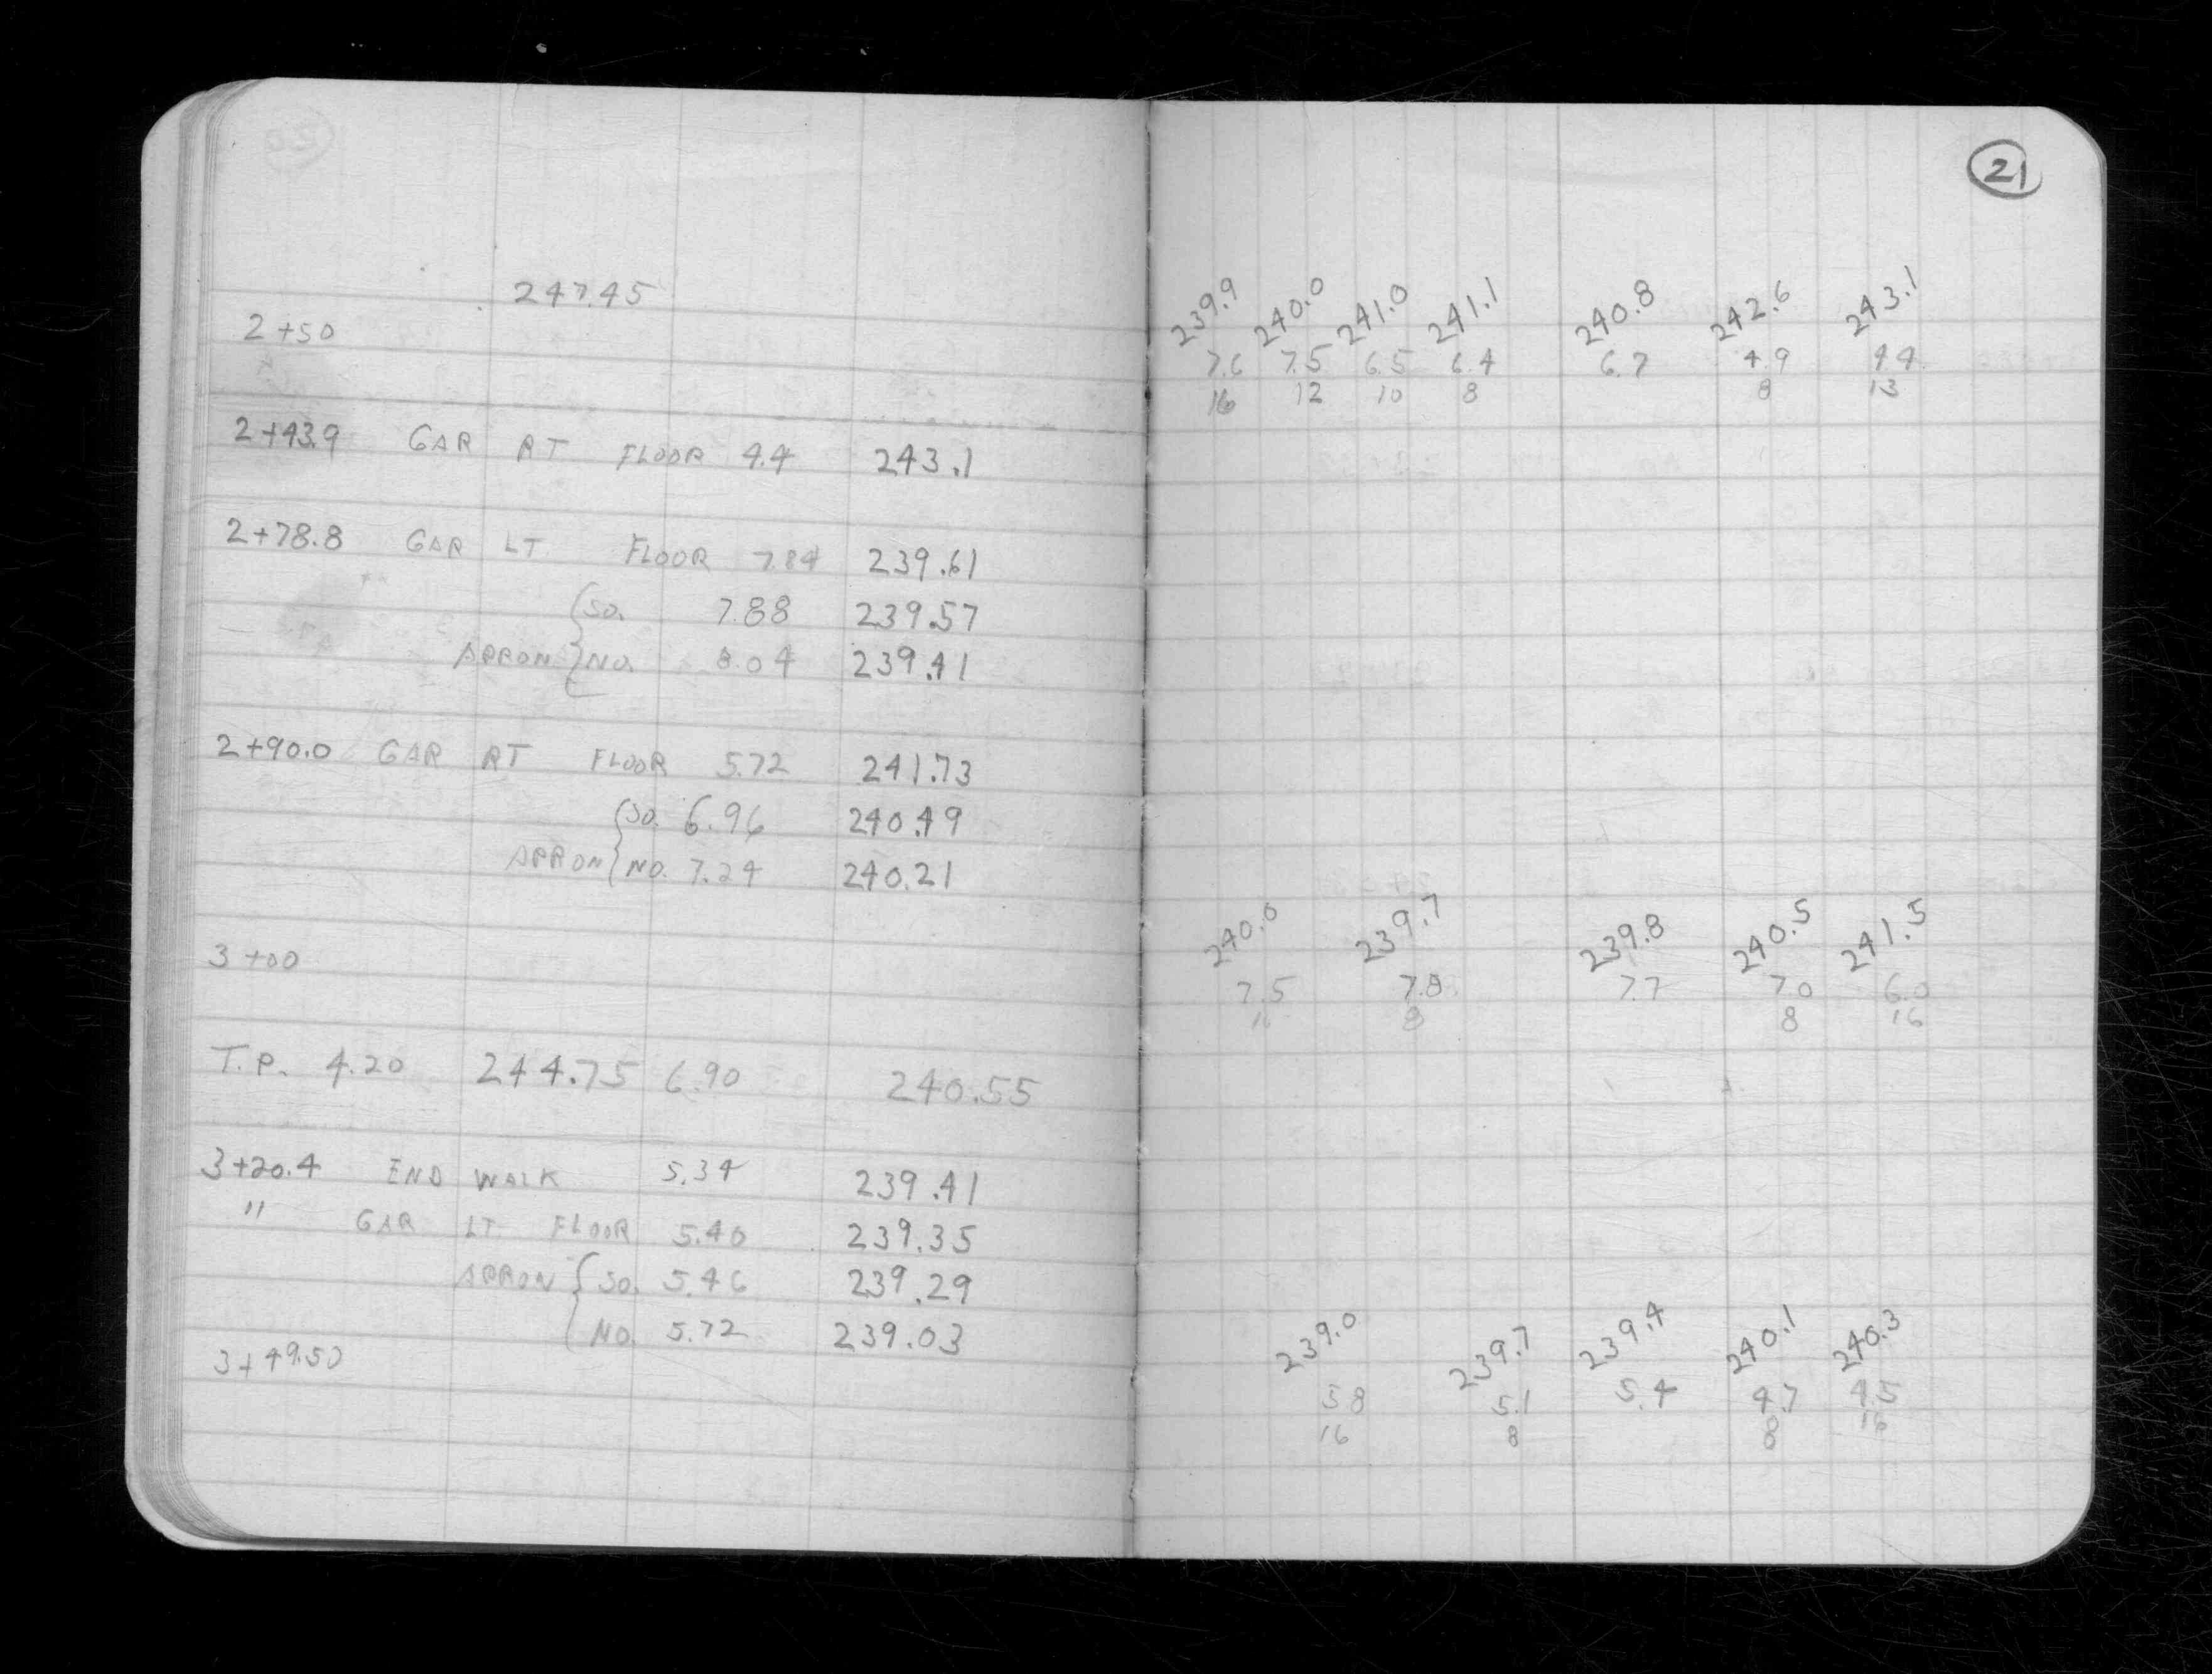 21
247.45
2+50
2+43.9 GAR RT FLOOR 4.4 243.1
2+78.8 GAR LT. FLOOR 7.84 239.61
SO. 7.88 239.57
APRON NO. 8.04 239.41
2+90.0 GAR RT FLOOR 5.72 241.73
SO. 6.96 240.49
APRON NO. 7.24 240.21
3+00
T.P. 4.20 244.75 6.90 240.55
3+20.4 END WALK 5.34 239.41
" GAR LT FLOOR 5.40 239.35
APRON SO. 5.46 239.29
NO. 5.72 239.03
3+49.50
239.9 240.0 241.0 241.1 240.8 242.6 243.1
7.6 7.5 6.5 6.4 6.7 4.9 4.4
16 12 10 8 8 13
240.0 239.7 239.8 240.5 241.5
7.5 7.8 7.7 7.0 6.0
16 8 8 16
239.0 239.7 239.4 240.1 240.3
5.8 5.1 5.4 4.7 4.5
16 8 8 16